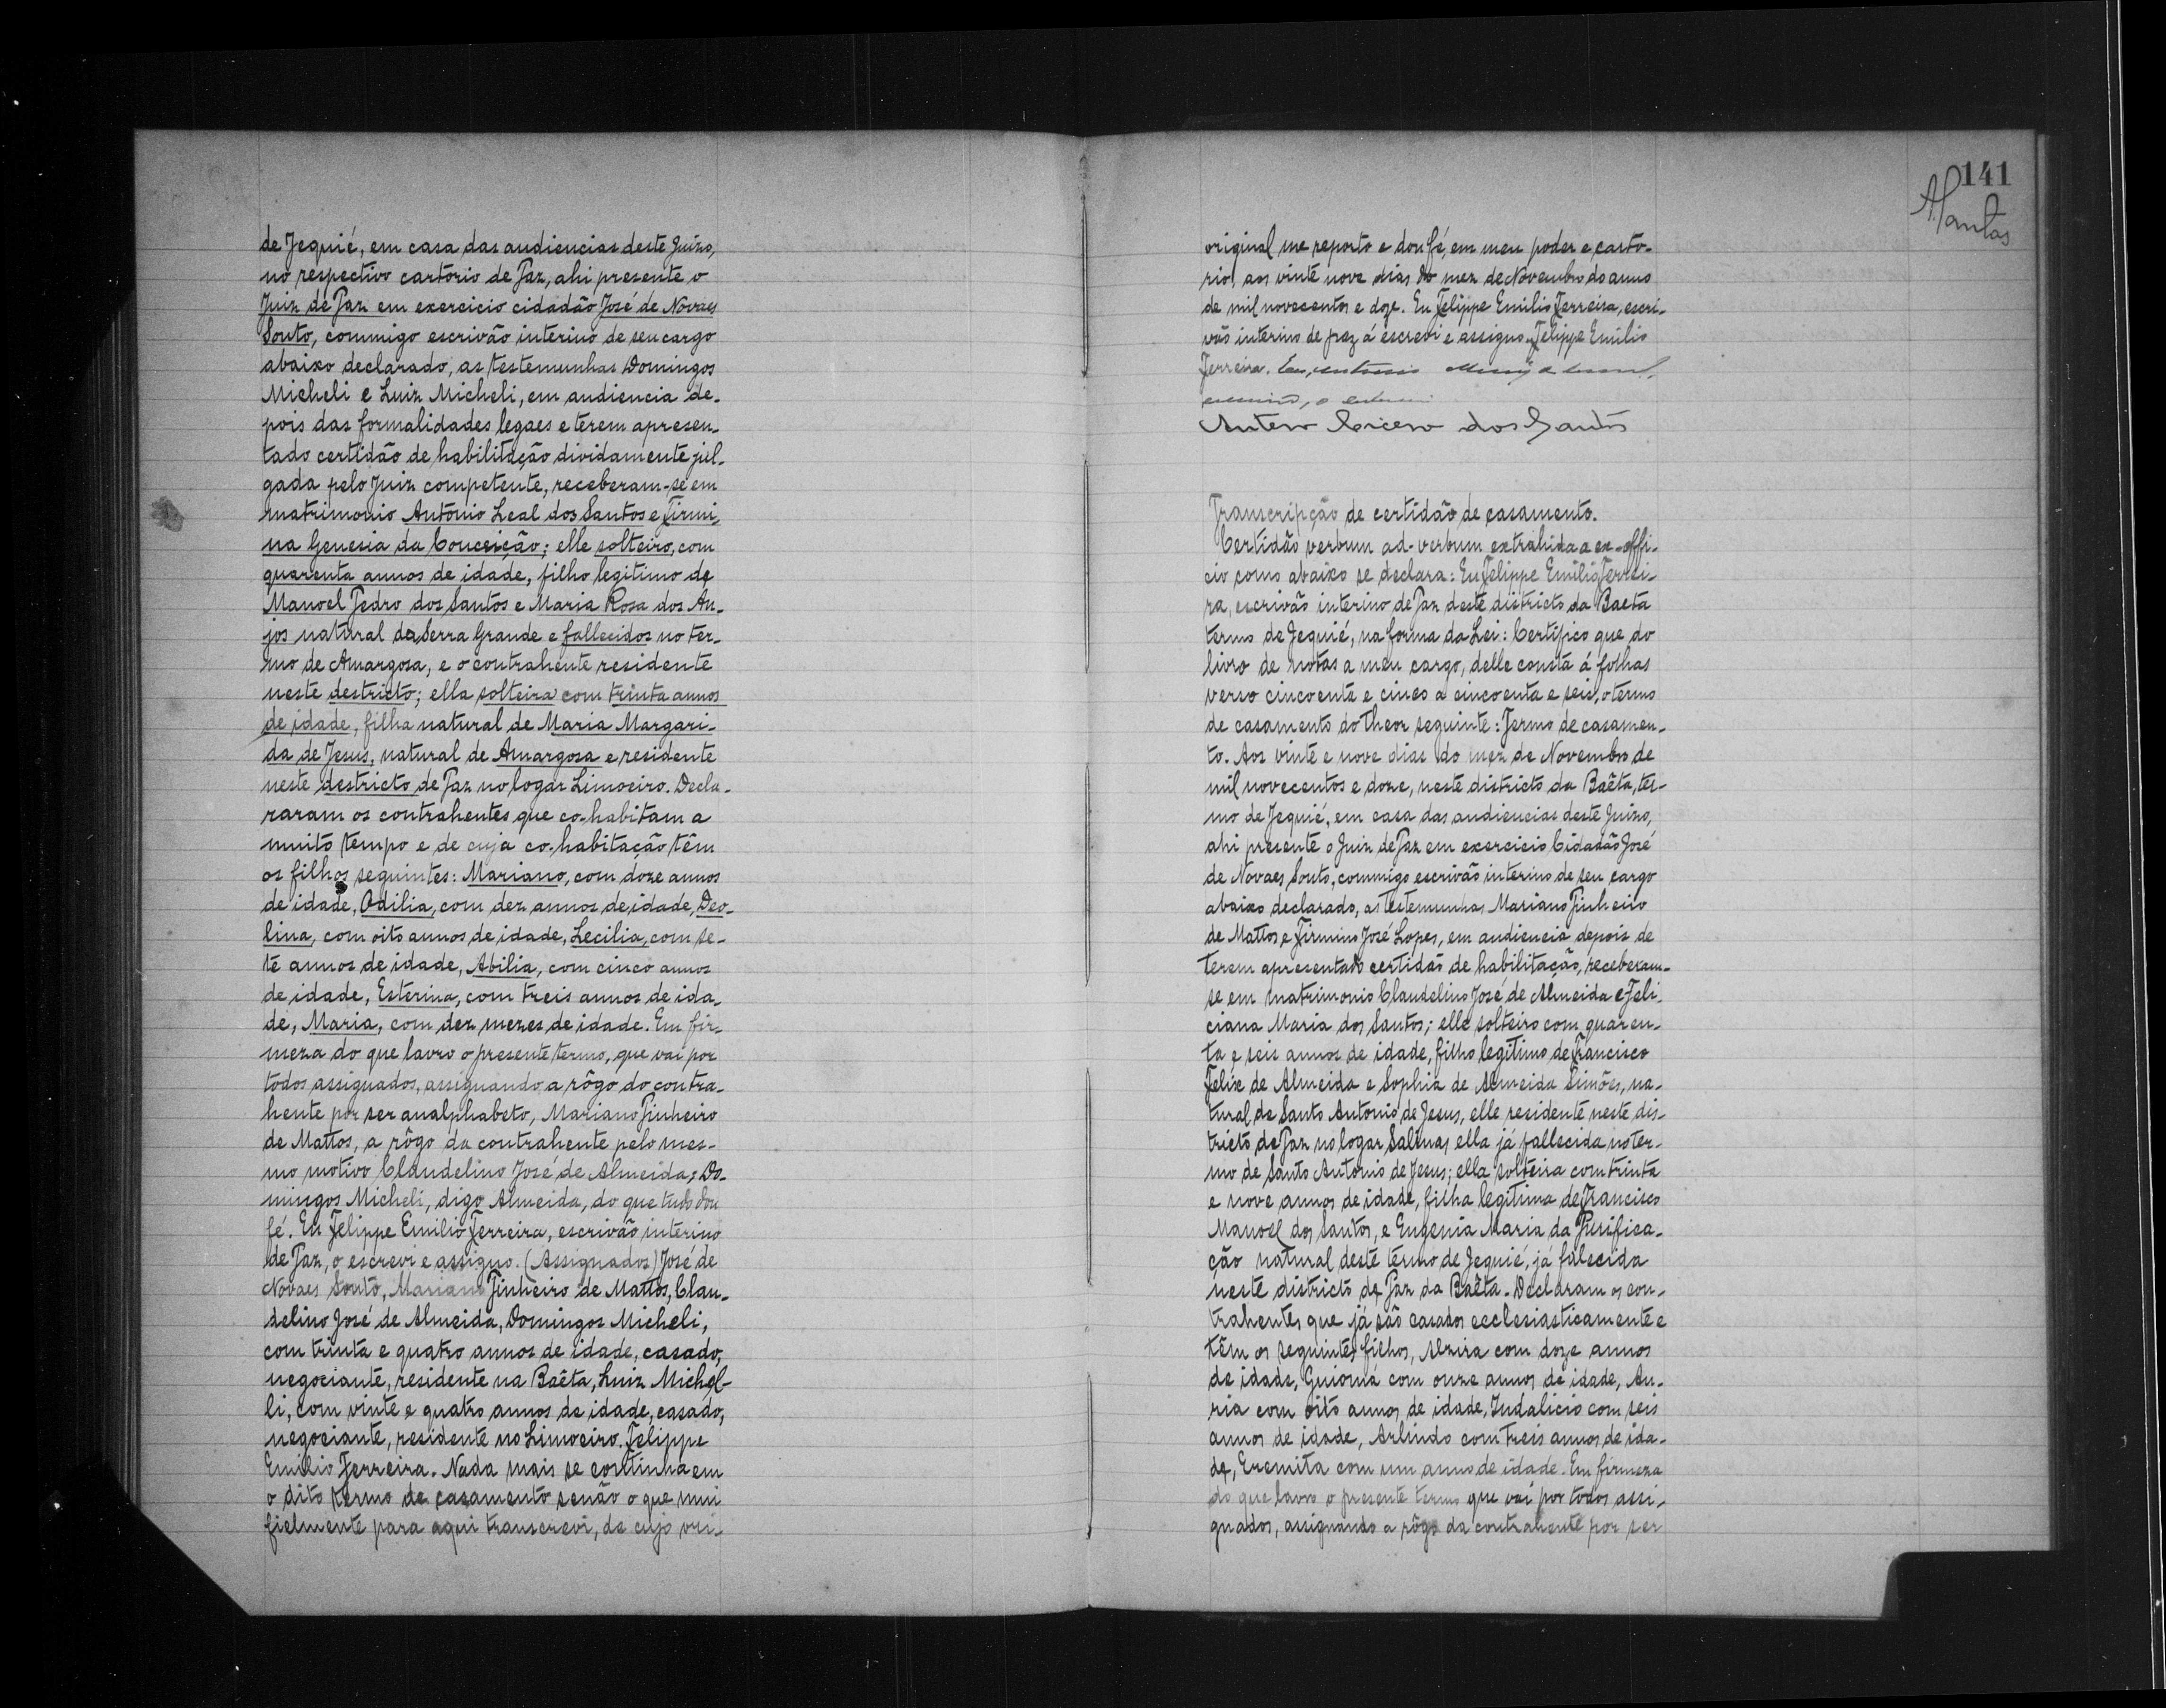 de Jequié, em casa das audiencias deste Juizo,
no respectivo cartorio de Paz, ahi presente o
Juiz de Paz em exercicio cidadão José de Novaes
Souto, commigo escrivão interino de seu cargo
abaixo declarado, as testemunhas Domingos
Micheli e Luiz Micheli, em audiencia de-
pois das formalidades legaes e terem apresen-
tado certidão de habilitação dividamente jul-
gada pelo Juiz competente, receberam-se em
matrimonio Antonio Leal dos Santos e Firmi-
na Genesia da Conceição; elle solteiro, com
quarenta annos de idade, filho legitimo de
Manoel Pedro dos Santos e Maria Rosa dos An-
jos natural da Serra Grande e fallecidos no ter-
mo de Amargosa, e o contrahente residente
neste destricto; ella solteira com trinta annos
de idade, filha natural de Maria Margari-
da de Jesus, natural de Amargosa e residente
neste destricto de Paz no logar Limoeiro. Decla-
raram os contrahentes que co-habitam a
muito tempo e de cuja co-habitação têm
os filhos seguintes: Mariano, com doze annos
de idade, Odilia, com dez annos de idade, Deo-
lina, com oito annos de idade, Lecilia, com se-
te annos de idade, Abilia, com cinco annos
de idade, Esterina, com treis annos de ida-
de, Maria, com dez mezes de idade. Em fir-
meza do que lavro o presente termo, que vai por
todos assignados, assignando a rôgo do contra-
hente por ser analphabeto, Mariano Pinheiro
de Mattos, a rôgo da contrahente pelo mes-
mo motivo Claudelino José de Almeida; Do-
mingos Micheli, digo Almeida, do que tudo dou
fé. Eu Felippe Emilio Ferreira, escrivão interino
de Paz, o escrevi e assigno. (Assignados) José de
Novaes Souto, Mariano Pinheiro de Mattos, Clau-
delino José de Almeida, Domingos Micheli,
com trinta e quatro annos de idade, casado,
negociante, residente na Baêta, Luiz Michel-
li, com vinte e quatro annos de idade, casado,
negociante, residente no Limoeiro. Felippe
Emilio Ferreira. Nada mais se continha em
o dito termo de casamento senão o que mui
fielmente para aqui transcrevi, de cujo ori-
141
original me reporto e dou fé, em meu poder e carto-
rio, aos vinte nove dias do mez de Novembro do anno
de mil novecentos e doze. Eu Felippe Emilio Ferreira, escri-
vão interino de paz á escrevi e assigno. Felippe Emilio
Ferreira. Eu, Antonio
Antero Cicero dos Santos
Transcripção de certidão de casamento.
Certidão verbum ad-verbum extrahida a ex-offi-
cio como abaixo se declara: Eu Felippe Emilio Ferrei-
ra, escrivão interino de Paz deste districto da Baeta
termo de Jequié, na forma da Lei: Certifico que do
livro de notas a meu cargo, delle consta á folhas
verso cincoenta e cinco a cincoenta e seis, o termo
de casamento do theor seguinte: Termo de casamen-
to. Aos vinte e nove dias do mez de Novembro de
mil novecentos e doze, neste districto da Baêta, ter-
mo de Jequié, em casa das audiencias deste Juizo,
ahi presente o Juiz de Paz em exercicio Cidadão José
de Novaes Souto, commigo escrivão interino de seu cargo
abaixo declarado, as testemunhas Mariano Pinheiro
de Mattos e Firmino José Lopes, em audiencia depois de
terem apresentado certidão de habilitação, receberam-
se em matrimonio Claudelino José de Almeida e Feli-
ciana Maria dos Santos; elle solteiro com quaren-
ta e seis annos de idade, filho legitimo de Francisco
Felix de Almeida e Sophia de Almeida Simões, na-
tural de Santo Antonio de Jesus, elle residente neste dis-
tricto de Paz no logar Salinas, ella já fallecida no ter-
mo de Santo Antonio de Jesus; ella solteira com trinta
e nove annos de idade, filha legitima de Francisco
Manoel dos Santos, e Eugenia Maria da Purifica-
ção natural deste termo de Jequié, já falecida
neste districto de Paz da Baêta. Declaram os con-
trahentes que já são casados ecclesiasticamente e
têm os seguintes filhos, Alzira com doze annos
de idade, Guiomá com onze annos de idade, Au-
ria com oito annos de idade, Indalicio com seis
annos de idade, Arlindo com treis annos de ida-
de, Eremita com um anno de idade. Em firmeza
do que lavro o presente termo que vai por todos assi-
gnados, assignando a rôgo da contrahente por ser